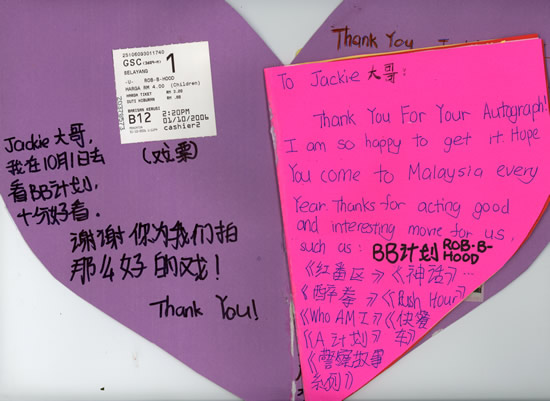 GSC
1
SELAYANG
-U- ROB-B-HOOD
HARGA RM 4.00 (Children)
HARGA TIKET RM 3.00
B12 2:20PM
01/10/2006
cashier2
(戏票)
Jackie 大哥,
我在10月1日去
看BB计划,
十分好看。
谢谢你为我们拍
那么好的戏!
Thank You!
Thank You
To Jackie 大哥:
Thank You For Your Autograph!
I am so happy to get it. Hope
You come to Malaysia every
Year. Thanks for acting good
and interesting movie for us,
such as: BB计划 ROB-B-
HOOD
《红番区》《神话》...
《醉拳》《Rush Hour》
《Who AM I》《快餐
《A计划》 车》
《警察故事
系列》